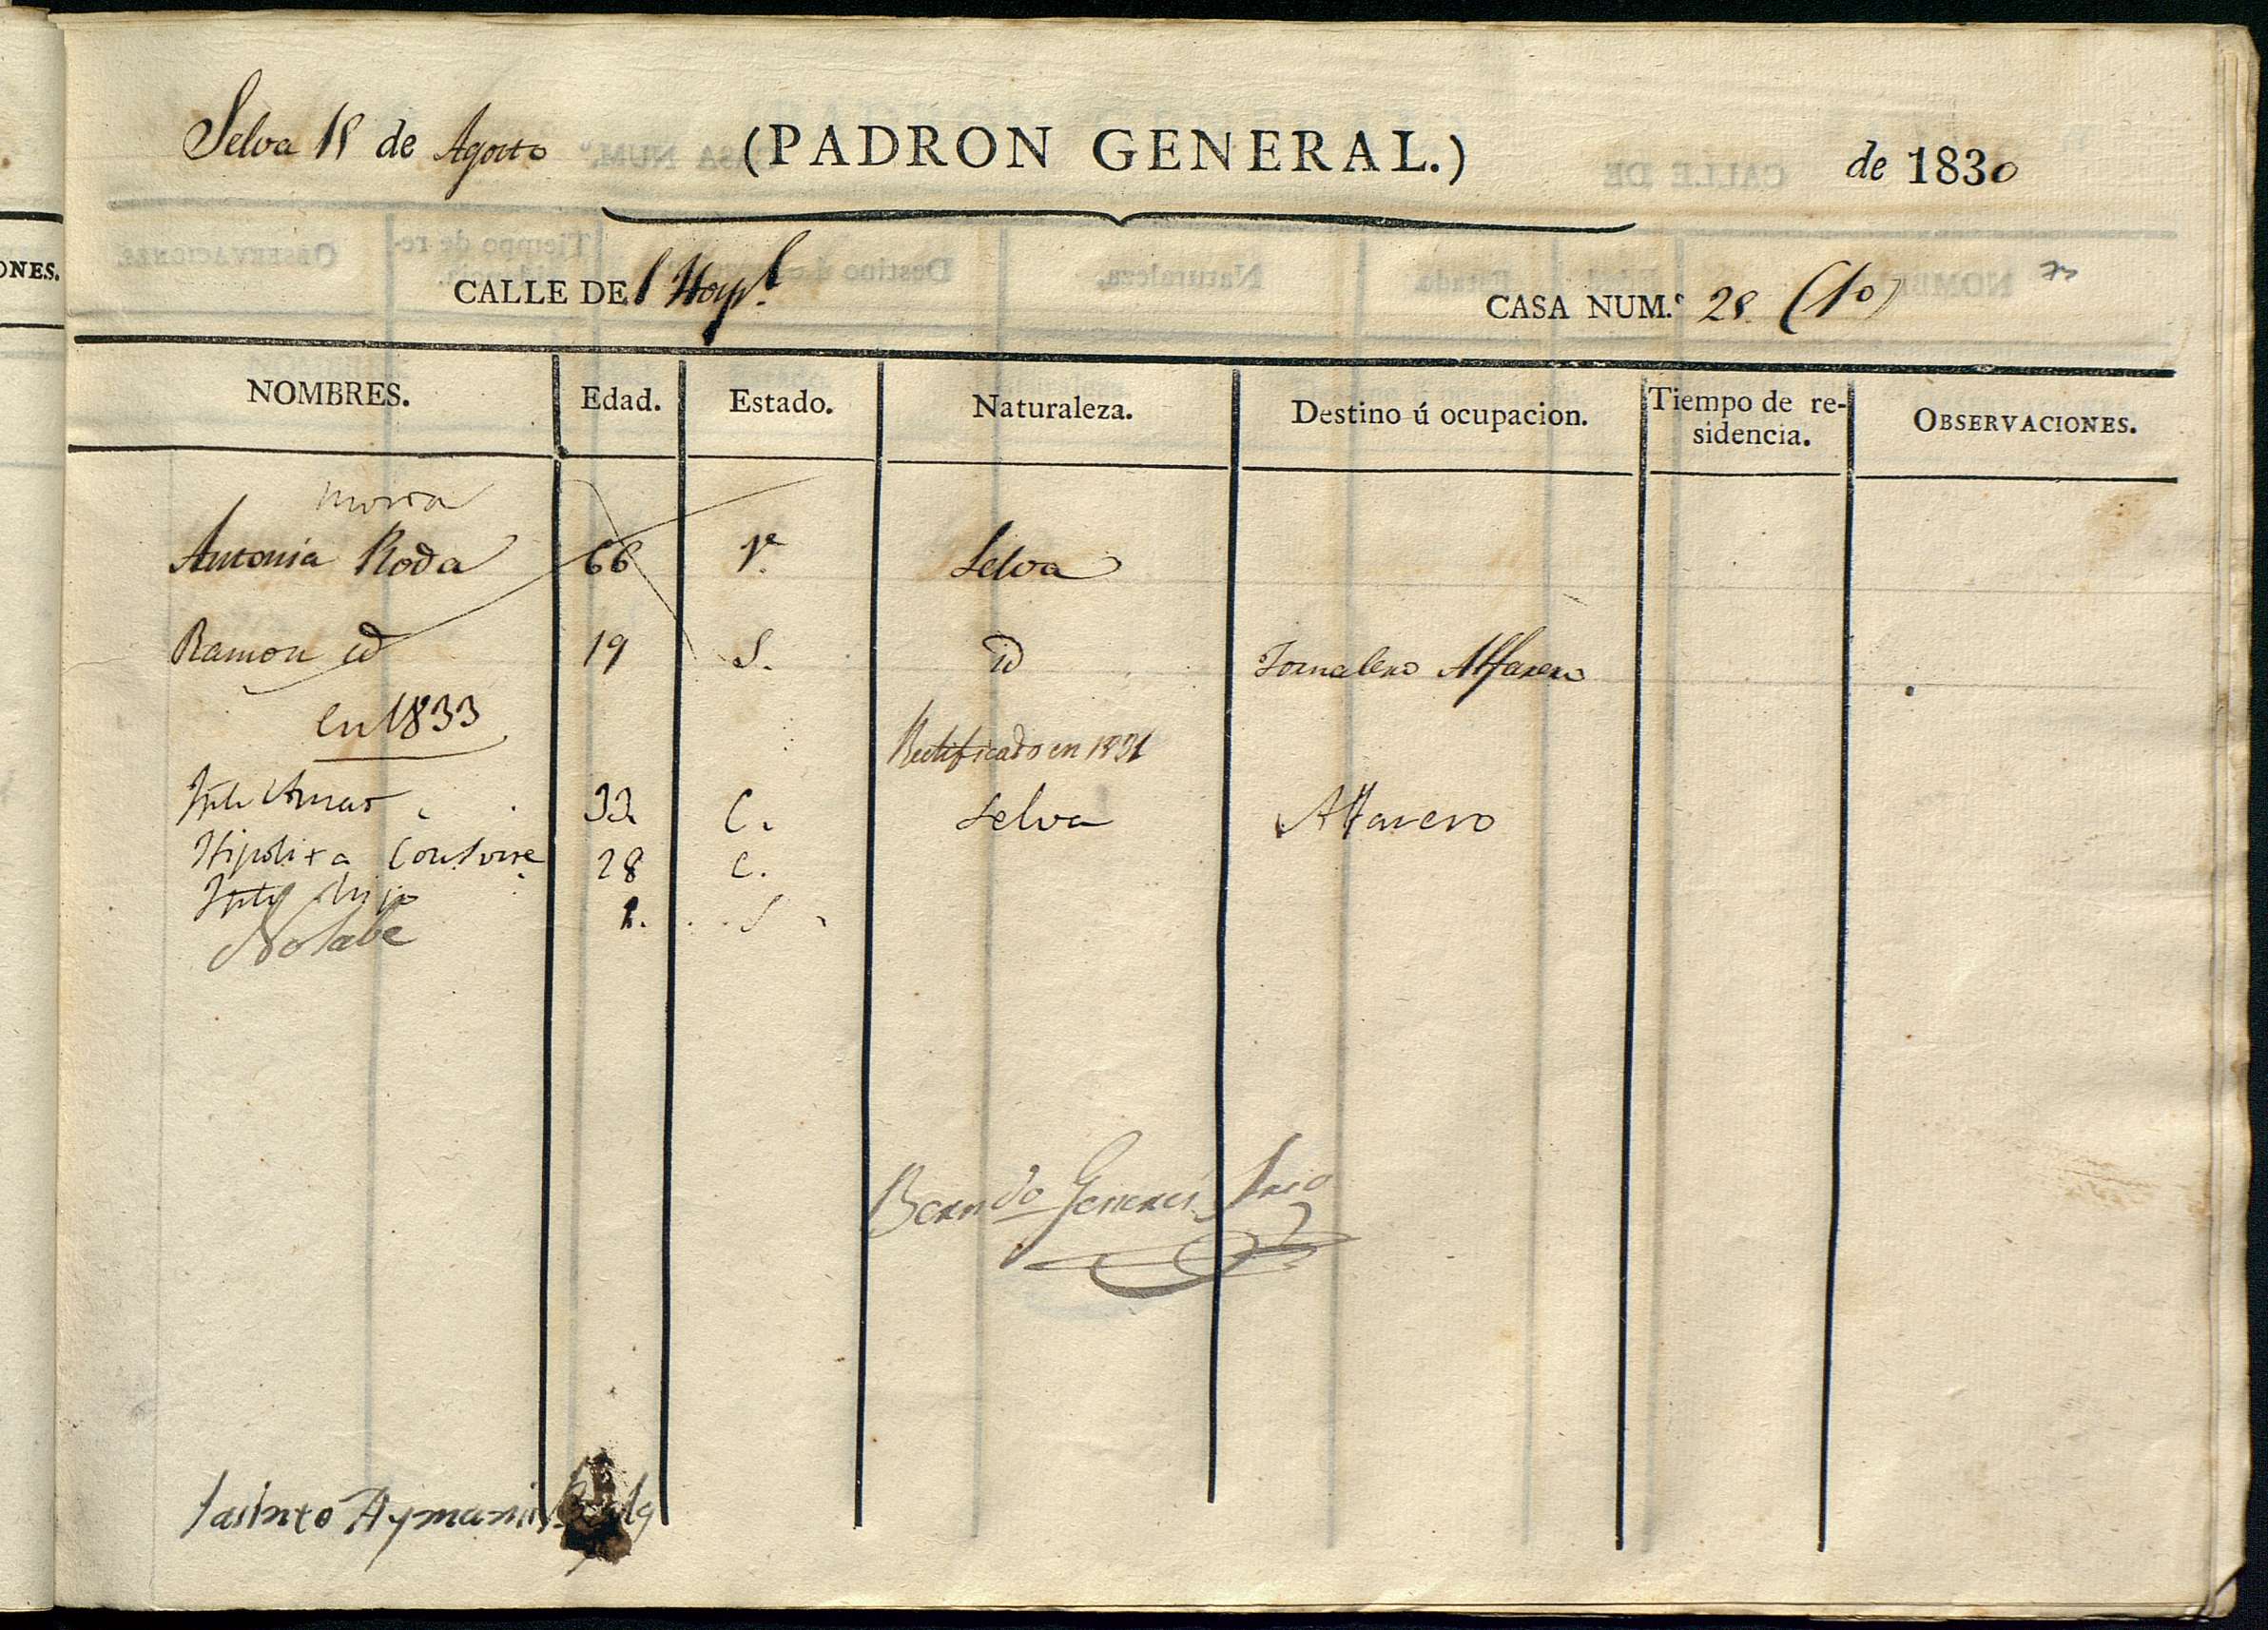 ONES.
Selva 18 de Agosto (PADRON GENERAL.) de 1830
CALLE DEl Hospl. CASA NUM.º 28. (10)
NOMBRES. Edad. Estado. Naturaleza. Destino ú ocupacion. Tiempo de re-sidencia. OBSERVACIONES.
morta
Antonia Roda 66 Vª Selva
Ramon id 19 S. id Jornalero Alfarero
en 1833
Rectificado en 1831
33. C. Selva Alfarero
Hipolita 28 C.
hijo S
No sabe
Berndo Generes Srio
Jasinto Aymami